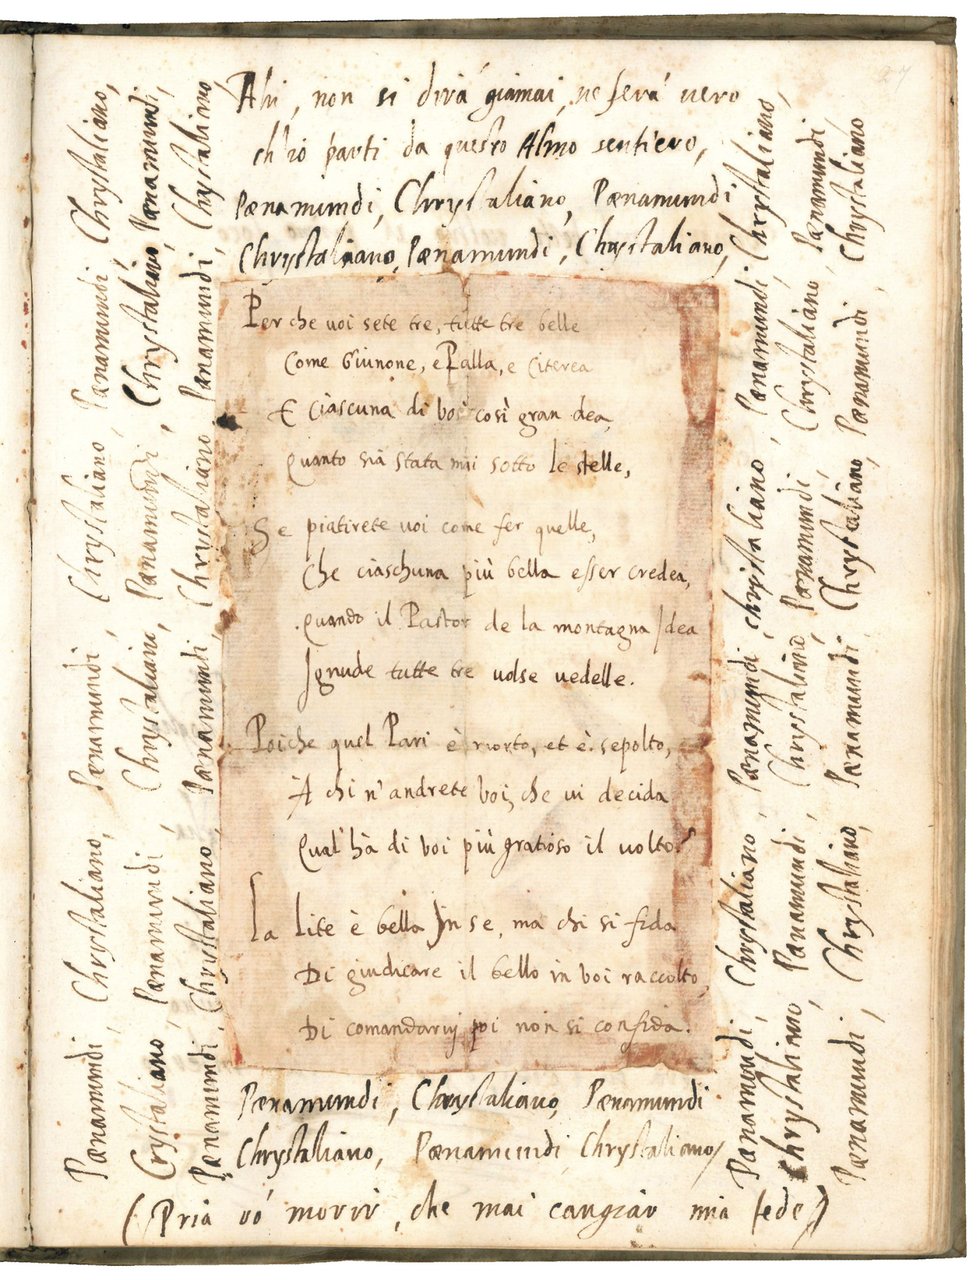 Ahi, non si dirà giamai, ne serà vero
ch'io parti da questo Almo sentiero,
Pænamundi, Chrystaliano, Pænamundi
Chrystaliano, Pænamundi, Chrystaliano,
Per che voi sete tre, tutte tre belle
Come Giunone, e Palla, e Citerea
E ciascuna di voi così gran dea,
Quanto sia stata mai sotto le stelle,
Se piatirete voi come fer quelle,
Che ciaschuna più bella esser credea,
Quando il Pastor de la montagna Idea
Ignude tutte tre volse vedelle.
Poiche quel Pari è morto, et è sepolto,
A chi n'andrete voi, che vi decida
Qual'hà di voi più gratioso il volto?
La lite è bella in se, ma chi si fida
Di giudicare il bello in voi raccolto,
Di comandarvi poi non si confida.
Pænamundi, Chrystaliano, Pænamundi
Chrystaliano, Pænamundi, Chrystaliano,
(Pria vò morir, che mai cangiar mia fede,)
Pænamundi, Chrystaliano, Pænamundi, Chrystaliano, Pænamundi, Chrystaliano,
Crystaliano, Pænamundi, Chrystaliano, Pænamundi, Chrystaliano, Pænamundi,
Pænamundi, Chrystaliano, Pænamundi, Chrystaliano, Pænamundi, Chrystaliano
Pænamondi, Chrystaliano, Pænamundi, christaliano, Pænamundi, Chrystaliano,
Chrystaliano, Pænamundi, Chrystaliano, Pænamundi, Chrystaliano, Pænamundi
Pænamundi, Chrystaliano, Pænamundi, Chrystaliano, Pænamundi, Chrystaliano